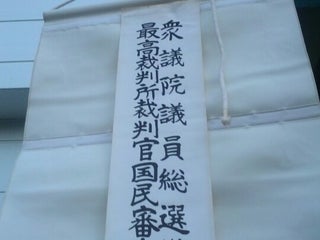 衆議院議員総選
最高裁判所裁判官国民審